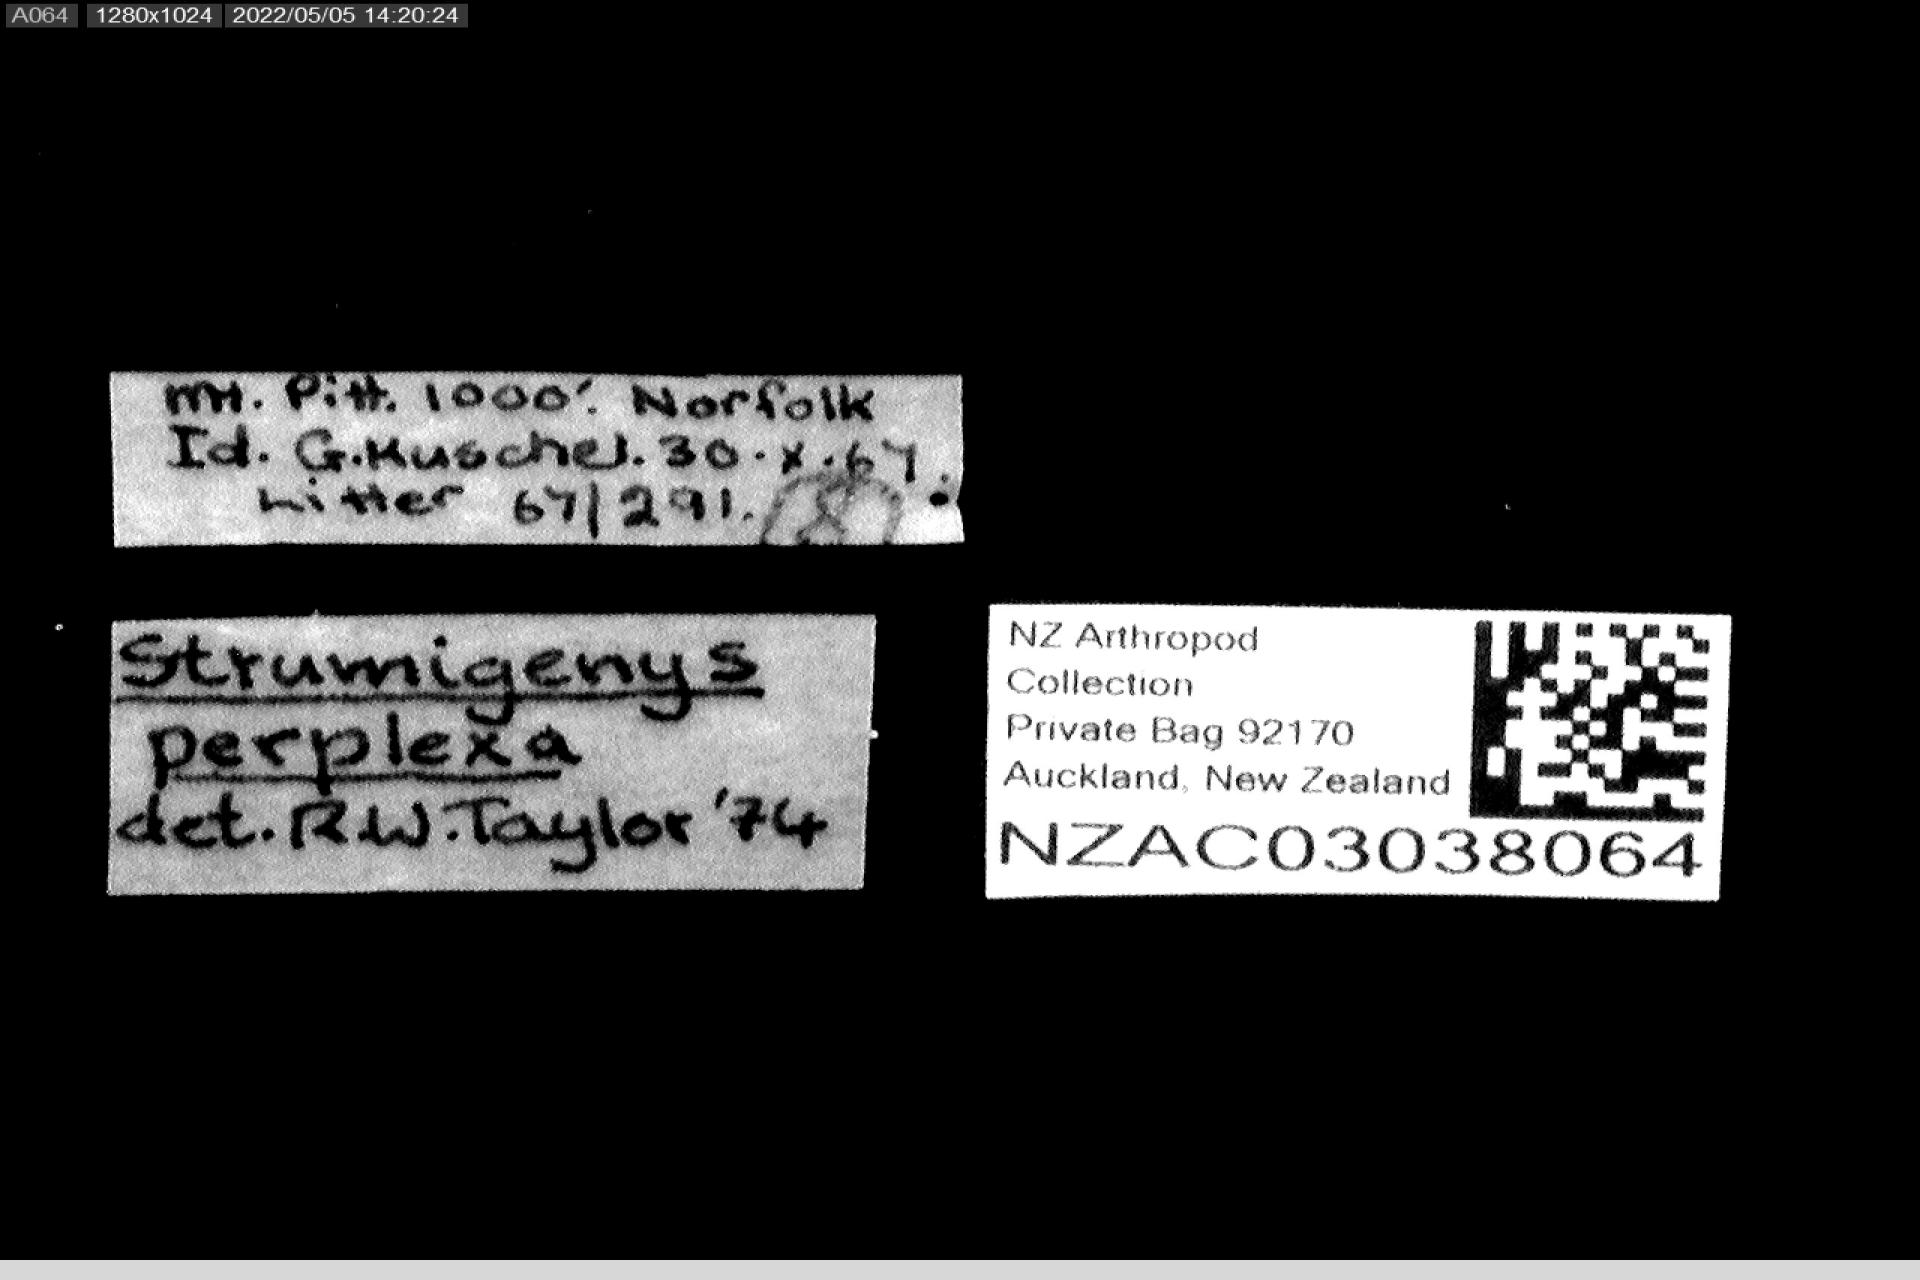 A064 1280x1024 2022/05/05 14:20:24
Mt. Pitt. 1000'. Norfolk
Id. G. Kuschel. 30.x.67.
Litter 67/291.
Strumigenys
perplexa
det. R.W. Taylor '74
NZ Arthropod
Collection
Private Bag 92170
Auckland, New Zealand
NZAC03038064